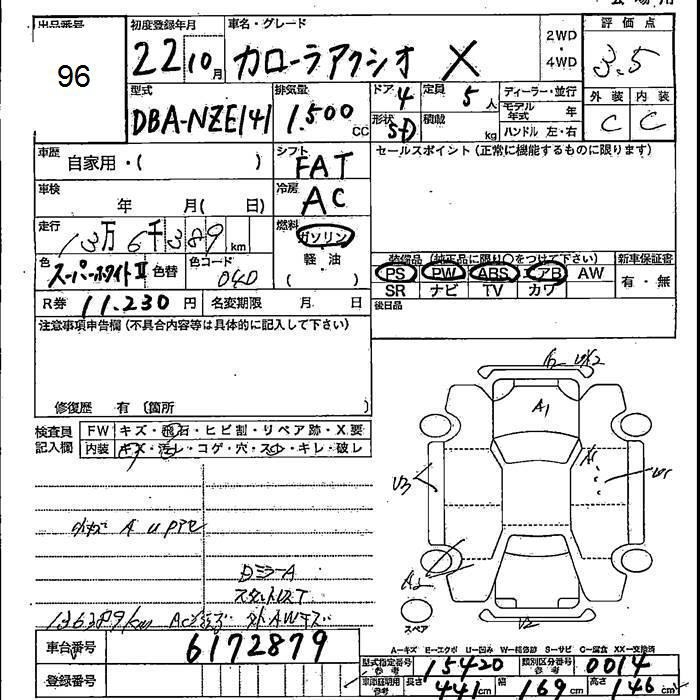 出品番号 初度登録年月 車名・グレード 評価点
96 22 10月 カローラアクシオ X 2WD・4WD 3.5
型式 排気量 ドア 4 定員 5人 ディーラー・並行 外装 内装
DBA-NZE141 1.500 CC 形状 SD 積載 kg モデル年式 年 ハンドル 左・右 C C
車歴 自家用・( ) シフト FAT セールスポイント (正常に機能するものに限ります)
車検 年 月( 日) 冷房 AC
走行 13万6千389km 燃料 ガソリン 軽油 ( )
色 スーパーホワイトⅡ 色替 色コード 040
装備品 (純正品に限り○をつけて下さい) 新車保証書
PS PW ABS エアB AW 有・無
SR ナビ TV カワ
R券 11.230円 名変期限 月 日 後日品
注意事項申告欄 (不具合内容等は具体的に記入して下さい)
修復歴 有 (箇所 )
検査員記入欄 FW キズ・飛石・ヒビ割・リペア跡・X要
内装 キズ・汚レ・コゲ・穴・スレ・キレ・破レ
A1
U3
A2
U2
DミラーA
136389km
スペア
A−キズ E−エクボ U−凹み W−補修跡 S−サビ C−腐食 XX−交換済
車台番号 6172879 型式指定番号 参考 15420 類別区分番号 参考 0014
登録番号 車庫証明用 参考 長さ 441cm 幅 169cm 高さ 146cm